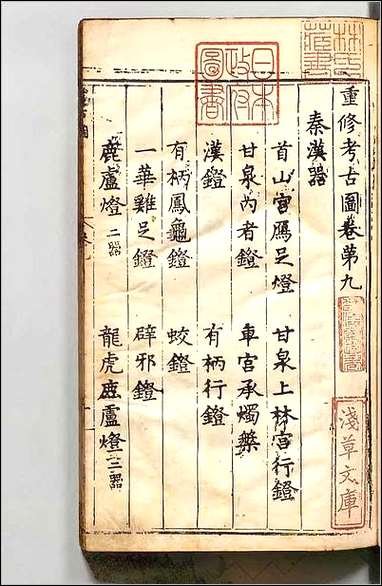 重修考古圖卷第九
秦漢器
首山宮鴈足燈 甘泉上林宮行鐙
甘泉內者鐙 車宮承燭槃
漢鐙 有柄行鐙
有柄鳳龜鐙 蛟鐙
一華雞足鐙 辟邪鐙
鹿盧燈二器 龍虎鹿盧燈二器
林氏藏書
日本政府圖書
淺草文庫